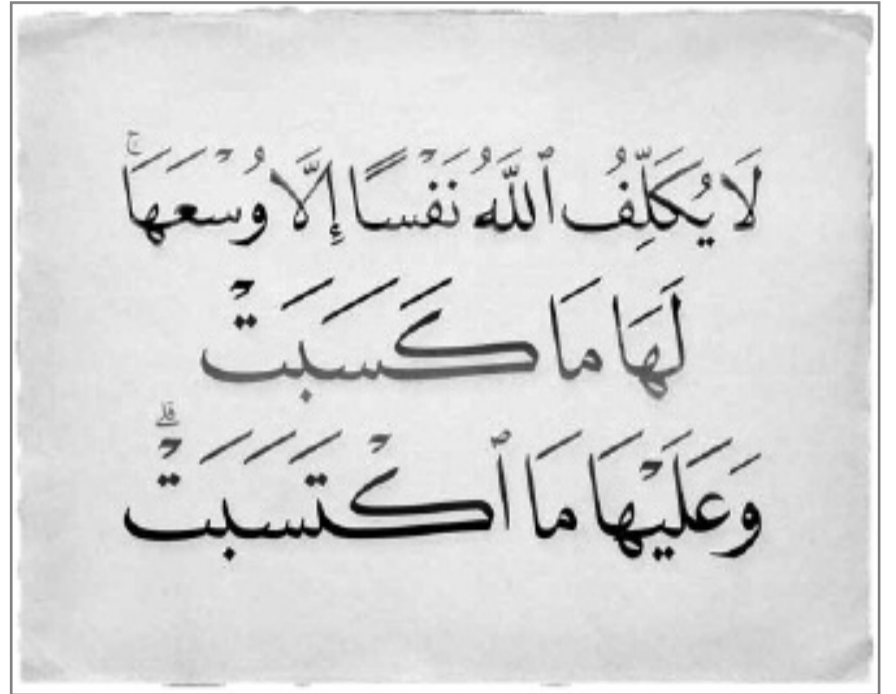 لَا يُكَلِّفُ ٱللَّهُ نَفۡسًا إِلَّا وُسۡعَهَاۚ
لَهَا مَا كَسَبَتۡ
وَعَلَيۡهَا مَا ٱكۡتَسَبَتۡۗ